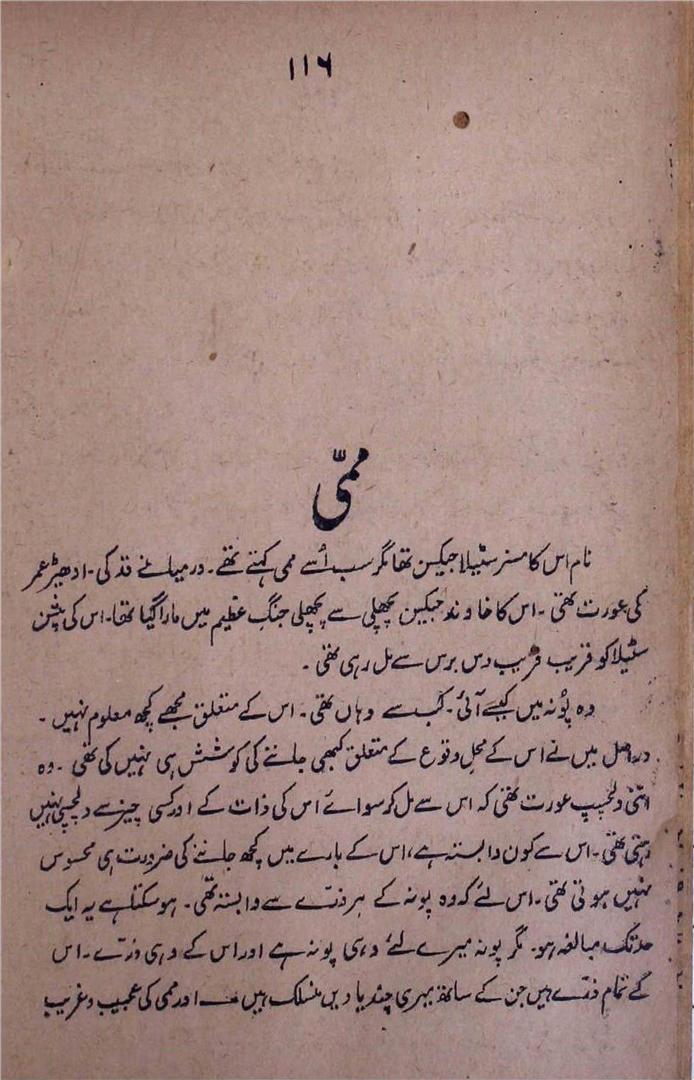 ۱۱۶
ممّی
نام اس کا مسز سٹیلا جیکسن تھا مگر سب اُسے ممی کہتے تھے۔ درمیانے قد کی۔ ادھیڑ عمر
کی عورت تھی۔ اس کا خاوند جیکسن پچھلی سے پچھلی جنگِ عظیم میں مارا گیا تھا۔ اس کی پنشن
سٹیلا کو قریب قریب دس برس سے مل رہی تھی۔
وہ پُونہ میں کیسے آئی۔ کب سے وہاں تھی۔ اس کے متعلق مجھے کچھ معلوم نہیں۔
دراصل میں نے اس کے محلِ وقوع کے متعلق کبھی جاننے کی کوشش ہی نہیں کی تھی۔ وہ
اتنی دلچسپ عورت تھی کہ اس سے مل کر سوائے اس کی ذات کے اور کسی چیز سے دلچسپی نہیں
رہتی تھی۔ اس سے کون وابستہ ہے، اس کے بارے میں کچھ جاننے کی ضرورت ہی محسوس
نہیں ہوتی تھی۔ اس لئے کہ وہ پونہ کے ہر ذرّے سے وابستہ تھی۔ ہو سکتا ہے یہ ایک
حد تک مبالغہ ہو۔ مگر پونہ میرے لئے وہی پونہ ہے اور اس کے وہی ذرّے۔ اس
کے تمام ذرّے ہیں جن کے ساتھ میری چند یادیں منسلک ہیں ــ اور ممی کی عجیب و غریب